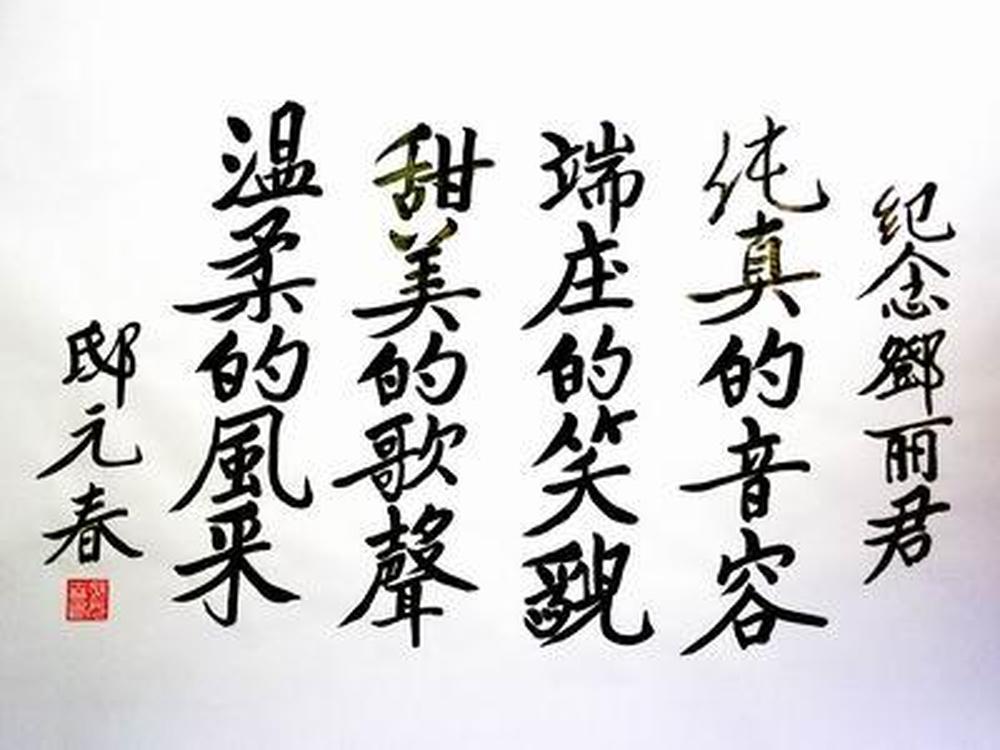 纪念鄧丽君
纯真的音容
端庄的笑貌
甜美的歌聲
温柔的風采
邸元春